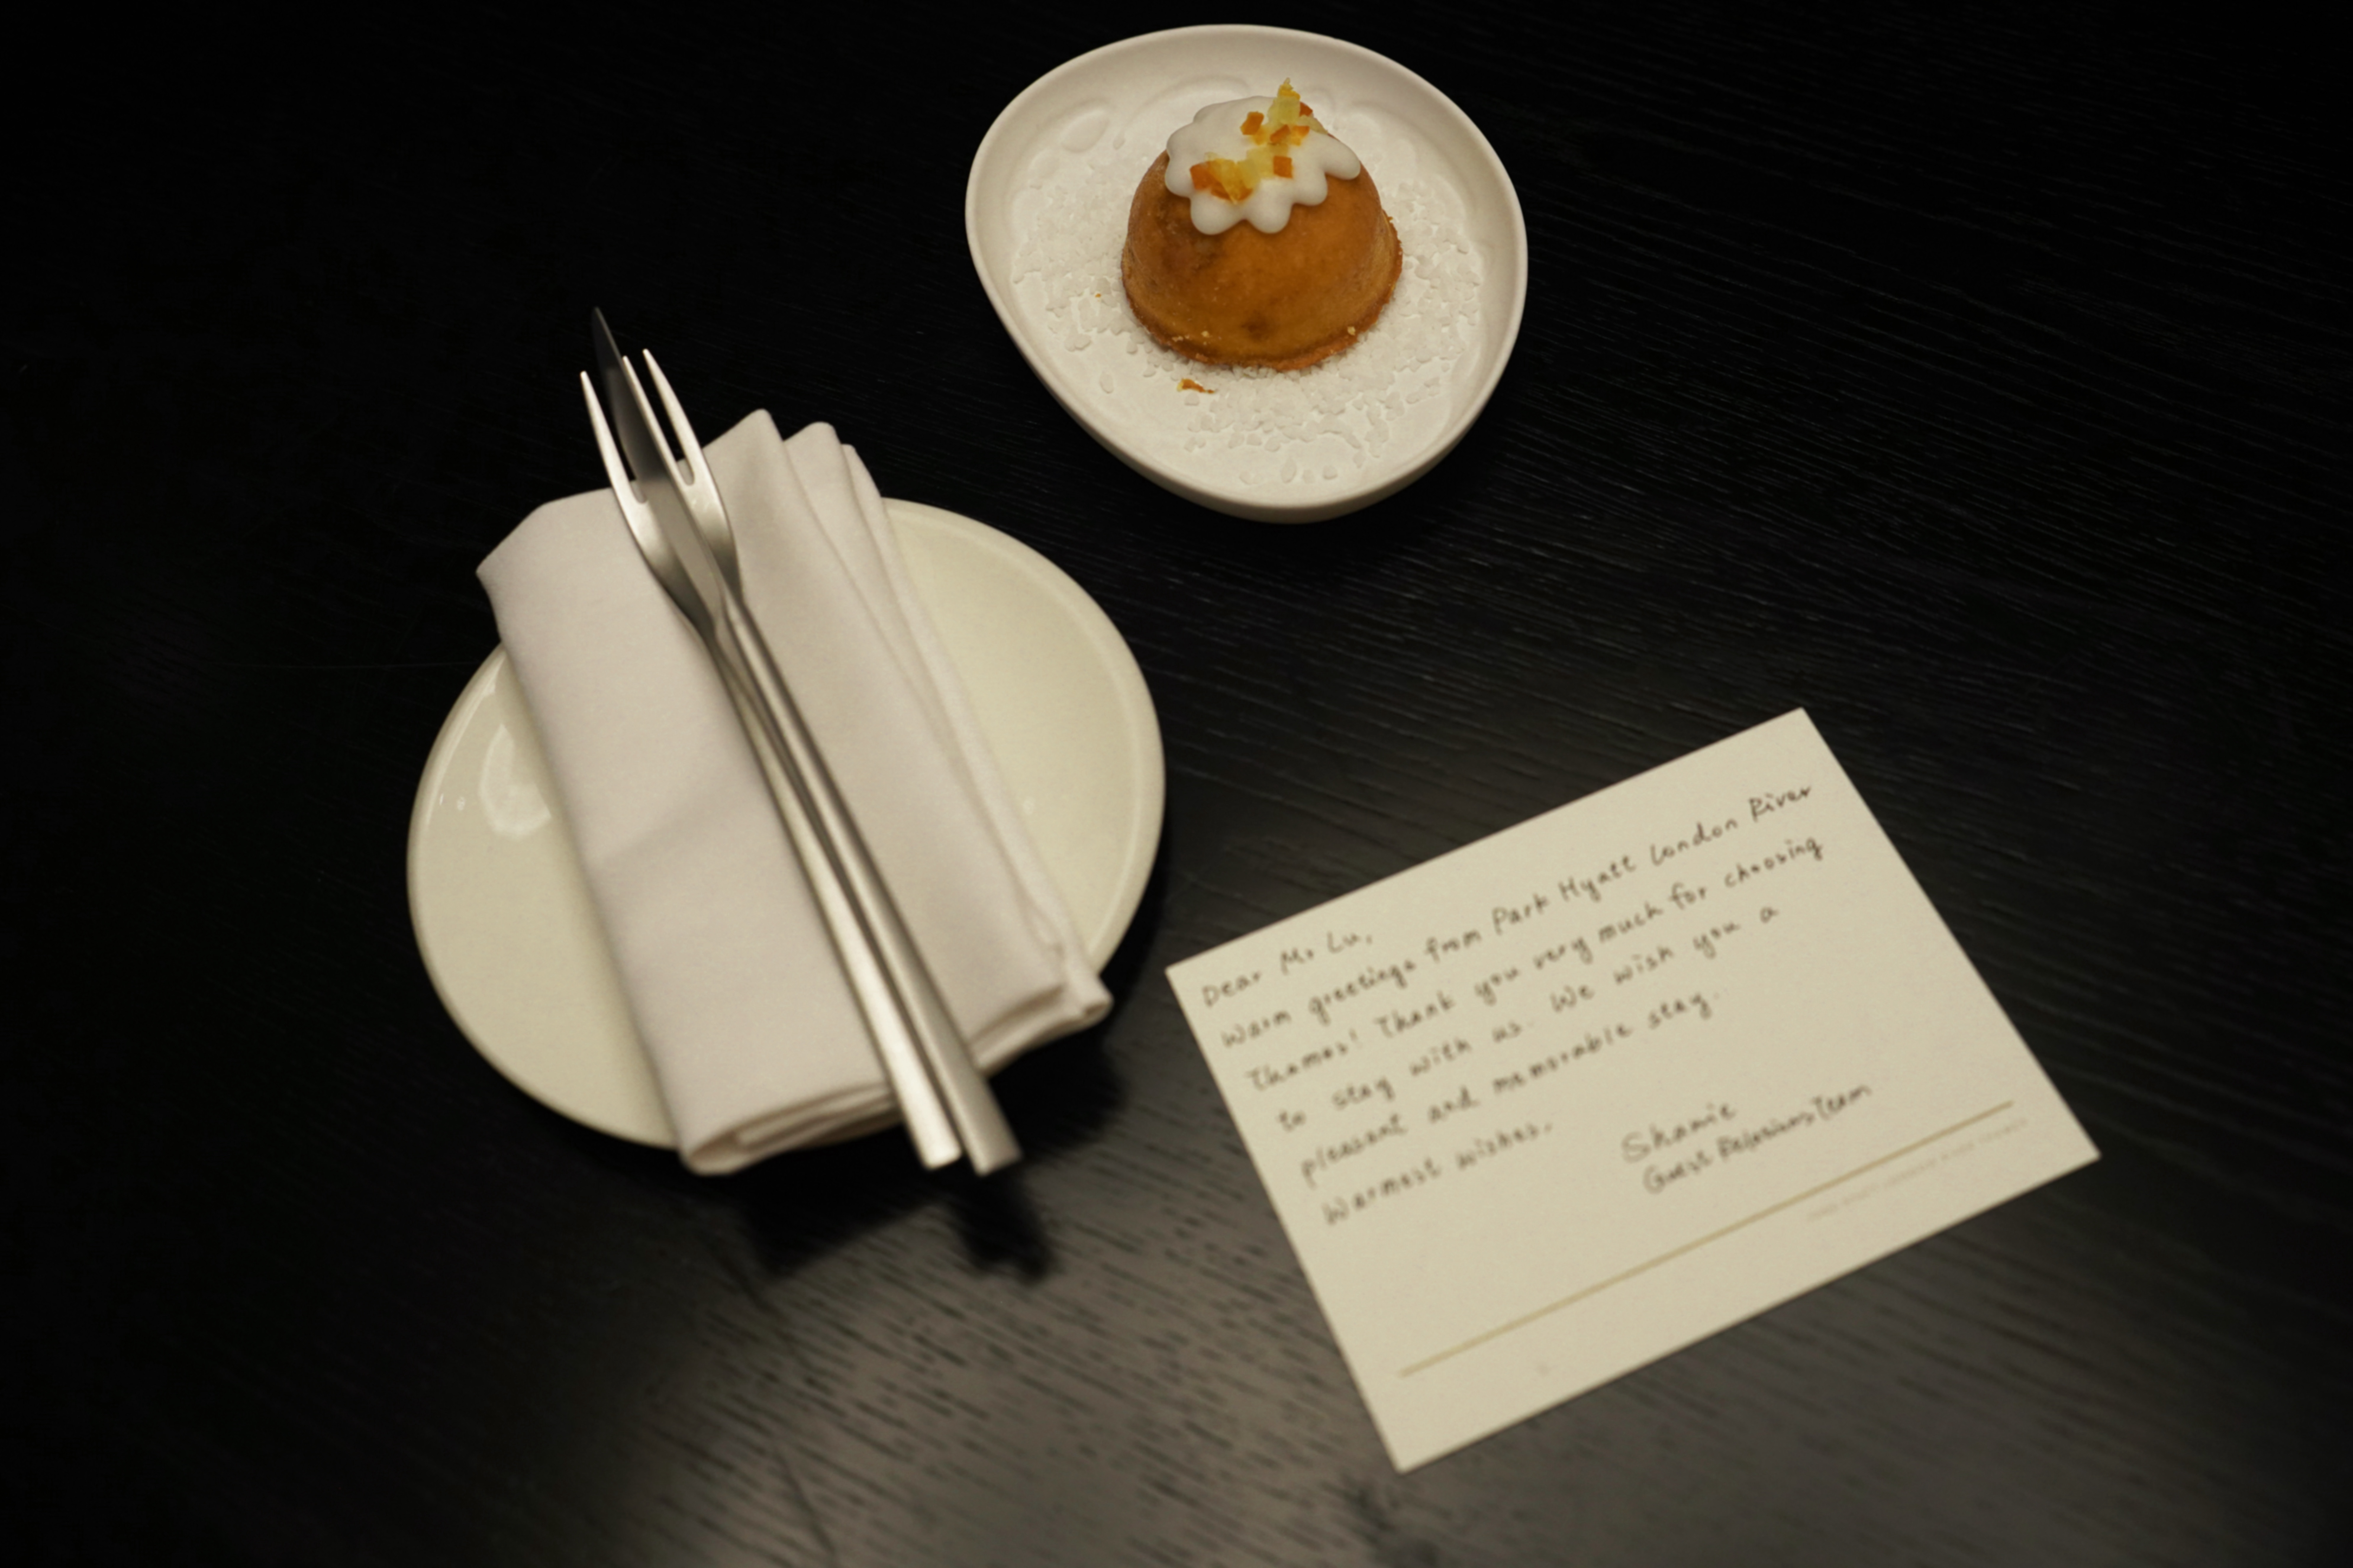 Dear Mr Lu,
Warm greetings from Park Hyatt London River
Thames! Thank you very much for choosing
to stay with us. We wish you a
pleasant and memorable stay.
Warmest wishes.
Guest Relations Team